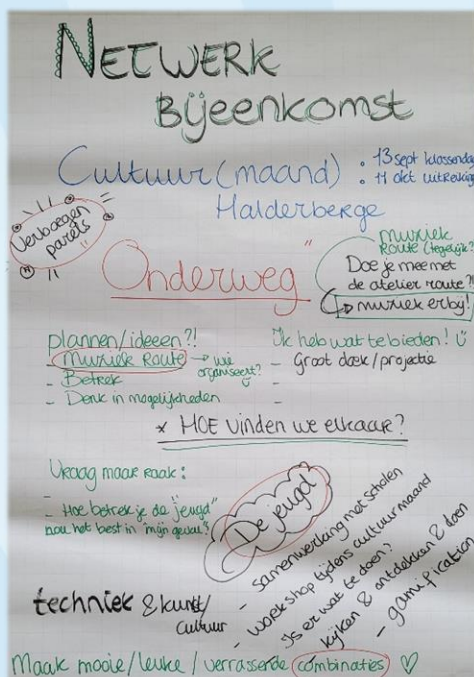 NETWERK
Bijeenkomst
Cultuur (maand)
• 13 sept
• 11 okt uitreiking
Halderberge
"Verborgen
parels"
"Onderweg"
muziek
Route (tegelijk?
Doe je mee met
de atelier route?!
muziek erby!
plannen/ideeen?!
- Muziek Route → wie
organiseert?
- Betrek
- Denk in mogelijkheden
Ik heb wat te bieden!
- Groot doek/projectie
-
-
* HOE vinden we elkaar?
Vraag maar raak:
-
- Hoe betrek je de "jeugd"
nou het best in "mijn geval?
De jeugd
- Samenwerking met scholen
- workshop tijdens cultuurmaand
Is er wat te doen?
kijken & ontdekken & doen
- gamification
techniek & kunst/
cultuur
Maak mooie/leuke/verrassende combinaties ♡